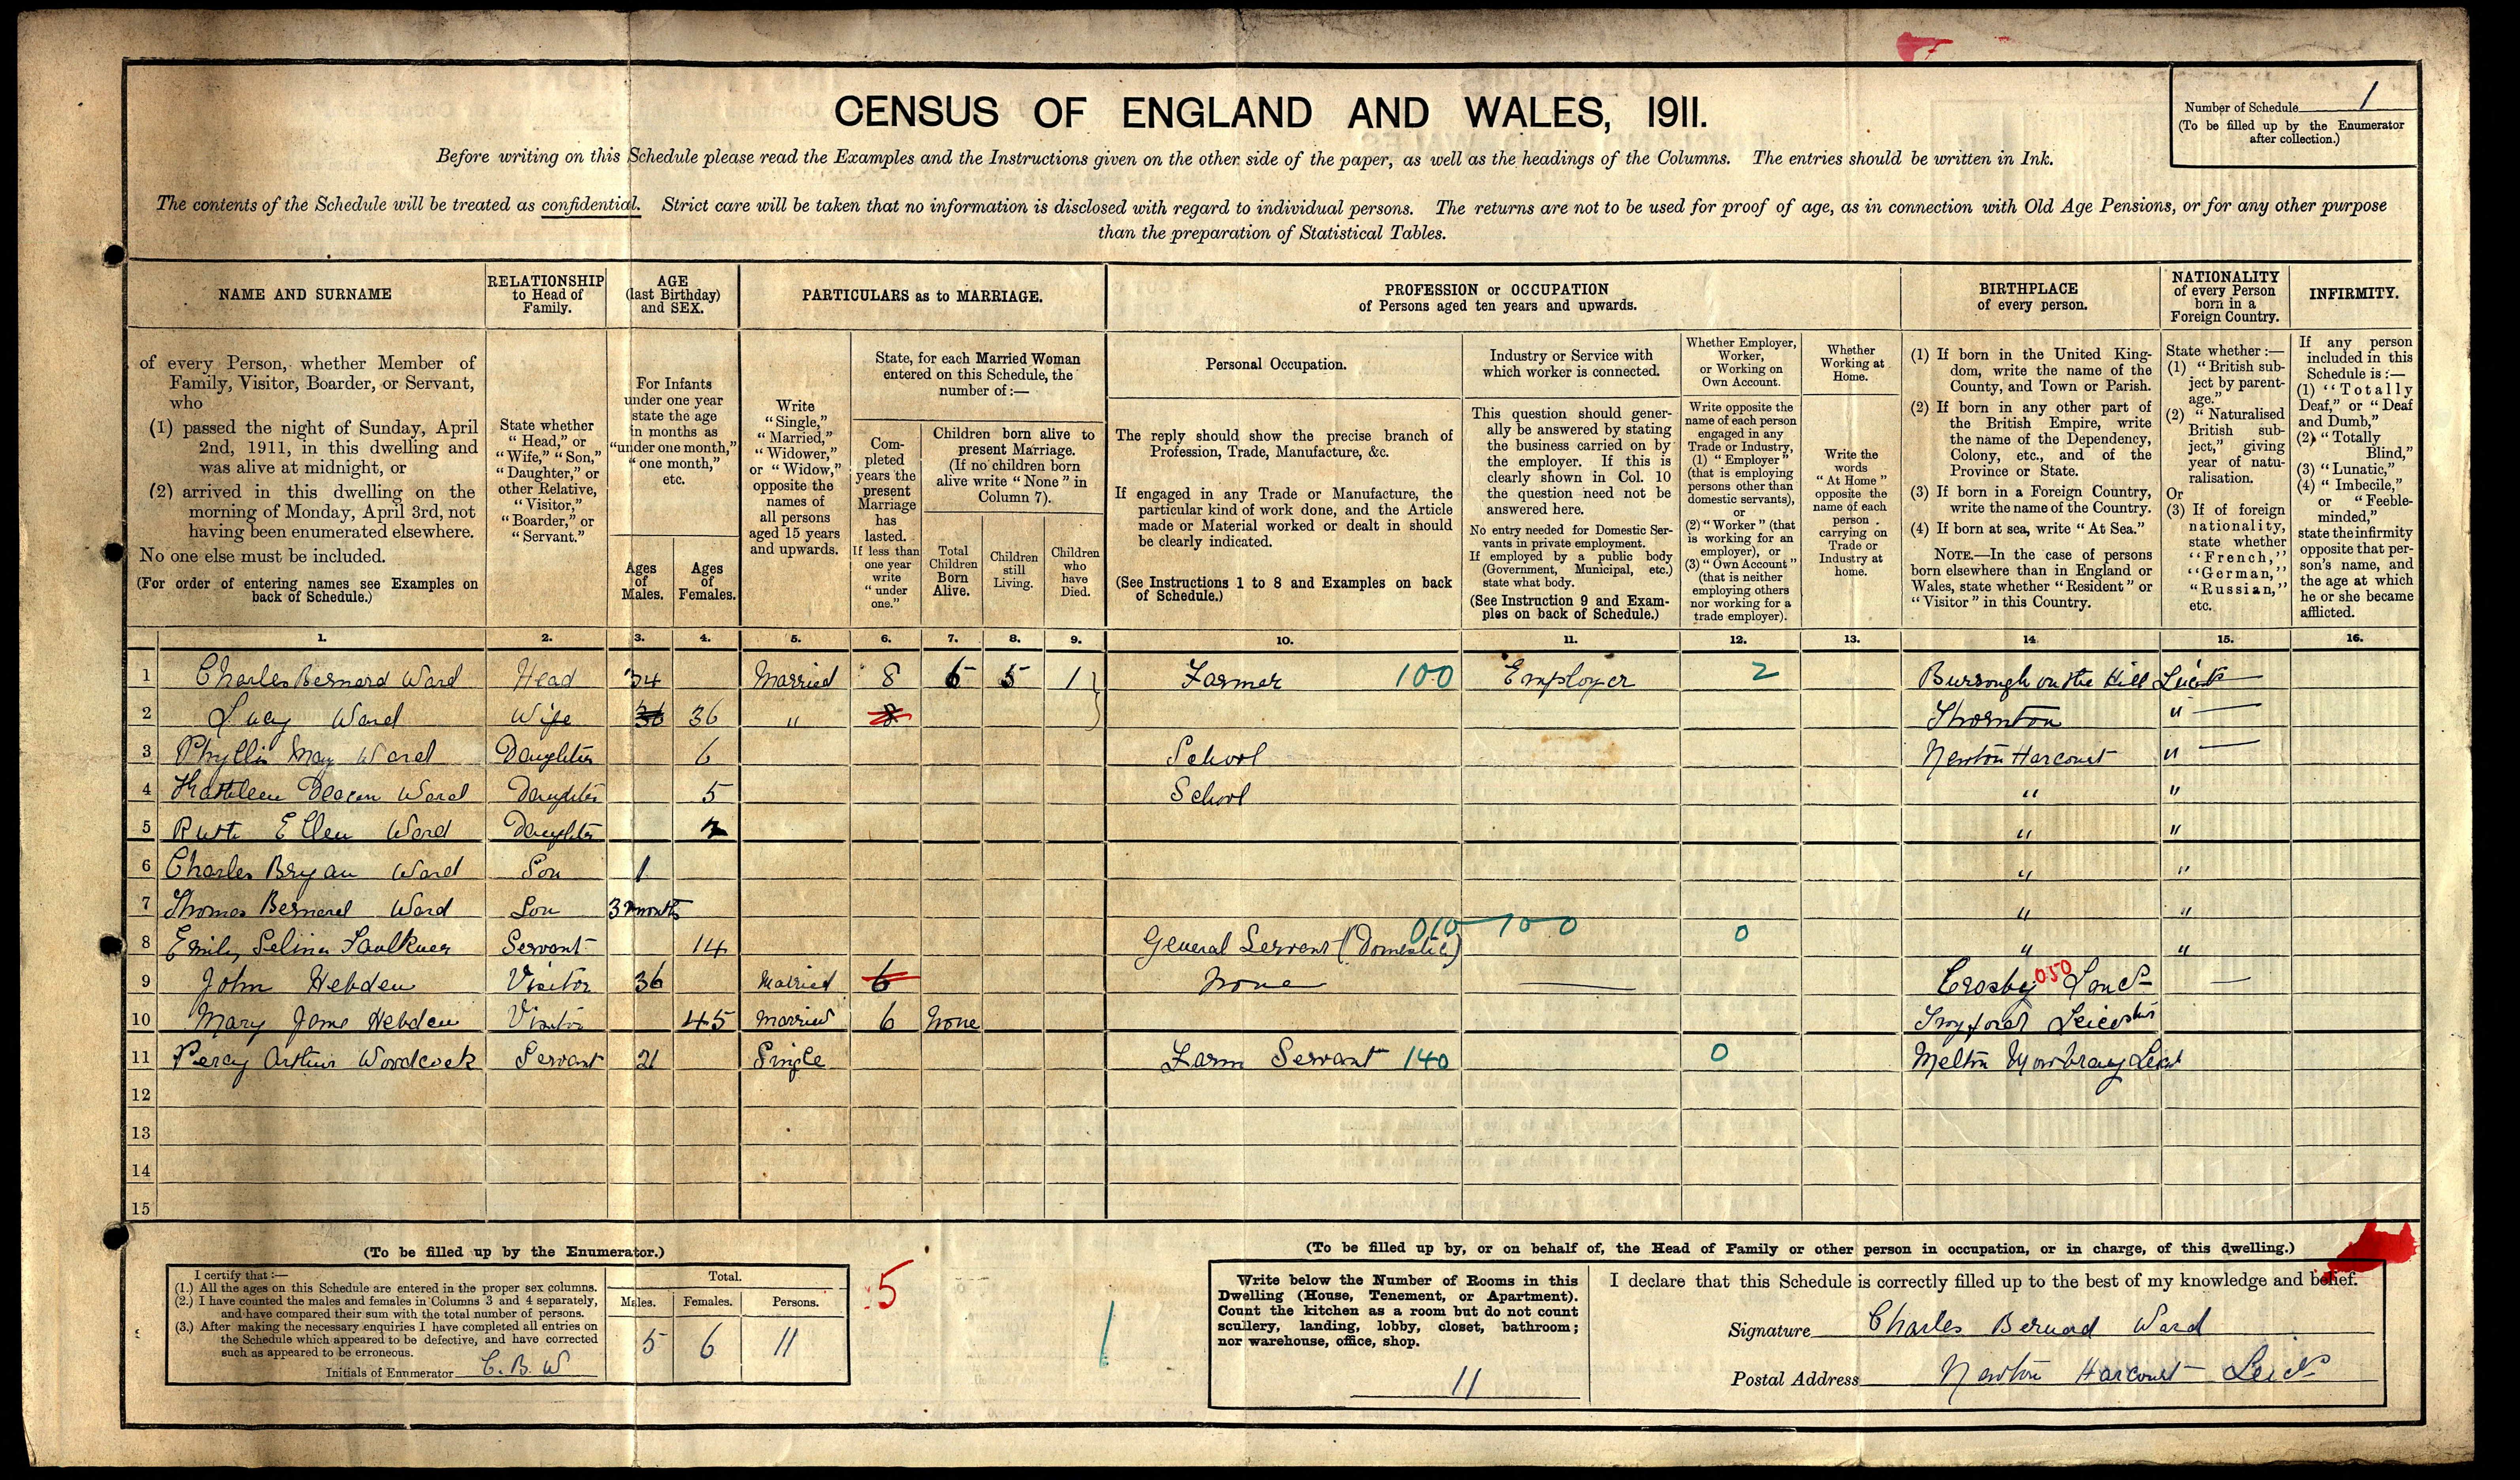 CENSUS OF ENGLAND AND WALES, 1911.
Number of Schedule 1
(To be filled up by the Enumerator
after collection.)
Before writing on this Schedule please read the Examples and the Instructions given on the other side of the paper, as well as the headings of the Columns. The entries should be written in Ink.
The contents of the Schedule will be treated as confidential. Strict care will be taken that no information is disclosed with regard to individual persons. The returns are not to be used for proof of age, as in connection with Old Age Pensions, or for any other purpose
than the preparation of Statistical Tables.
NAME AND SURNAME
of every Person, whether Member of
Family, Visitor, Boarder, or Servant,
who
(1) passed the night of Sunday, April
2nd, 1911, in this dwelling and
was alive at midnight, or
(2) arrived in this dwelling on the
morning of Monday, April 3rd, not
having been enumerated elsewhere.
No one else must be included.
(For order of entering names see Examples on
back of Schedule.)
RELATIONSHIP
to Head of
Family.
State whether
"Head," or
"Wife," "Son,"
"Daughter," or
other Relative,
"Visitor,"
"Boarder," or
"Servant."
AGE
(last Birthday)
and SEX.
For Infants
under one year
state the age
in months as
"under one month,"
"one month,"
etc.
Ages
of
Males.
Ages
of
Females.
PARTICULARS as to MARRIAGE.
Write
"Single,"
"Married,"
"Widower,"
or "Widow,"
opposite the
names of
all persons
aged 15 years
and upwards.
State, for each Married Woman
entered on this Schedule, the
number of:—
Com-
pleted
years the
present
Marriage
has
lasted.
If less than
one year
write
"under
one."
Children born alive to
present Marriage.
(If no children born
alive write "None" in
Column 7).
Total
Children
Born
Alive.
Children
still
Living.
Children
who
have
Died.
PROFESSION or OCCUPATION
of Persons aged ten years and upwards.
Personal Occupation.
The reply should show the precise branch of
Profession, Trade, Manufacture, &c.
If engaged in any Trade or Manufacture, the
particular kind of work done, and the Article
made or Material worked or dealt in should
be clearly indicated.
(See Instructions 1 to 8 and Examples on back
of Schedule.)
Industry or Service with
which worker is connected.
This question should gener-
ally be answered by stating
the business carried on by
the employer. If this is
clearly shown in Col. 10
the question need not be
answered here.
No entry needed for Domestic Ser-
vants in private employment.
If employed by a public body
(Government, Municipal, etc.)
state what body.
(See Instruction 9 and Exam-
ples on back of Schedule.)
Whether Employer,
Worker,
or Working on
Own Account.
Write opposite the
name of each person
engaged in any
Trade or Industry,
(1) "Employer"
(that is employing
persons other than
domestic servants),
or
(2) "Worker" (that
is working for an
employer), or
(3) "Own Account"
(that is neither
employing others
nor working for a
trade employer).
Whether
Working at
Home.
Write the
words
"At Home"
opposite the
name of each
person
carrying on
Trade or
Industry at
home.
BIRTHPLACE
of every person.
(1) If born in the United King-
dom, write the name of the
County, and Town or Parish.
(2) If born in any other part of
the British Empire, write
the name of the Dependency,
Colony, etc., and of the
Province or State.
(3) If born in a Foreign Country,
write the name of the Country.
(4) If born at sea, write "At Sea."
NOTE.—In the case of persons
born elsewhere than in England or
Wales, state whether "Resident" or
"Visitor" in this Country.
NATIONALITY
of every Person
born in a
Foreign Country.
State whether:—
(1) "British sub-
ject by parent-
age."
(2) "Naturalised
British sub-
ject," giving
year of natu-
ralisation.
Or
(3) If of foreign
nationality,
state whether
"French,"
"German,"
"Russian,"
etc.
INFIRMITY.
If any person
included in this
Schedule is:—
(1) "Totally
Deaf," or "Deaf
and Dumb,"
(2) "Totally
Blind,"
(3) "Lunatic,"
(4) "Imbecile,"
or "Feeble-
minded,"
state the infirmity
opposite that per-
son's name, and
the age at which
he or she became
afflicted.
1. 2. 3. 4. 5. 6. 7. 8. 9. 10. 11. 12. 13. 14. 15. 16.
1 Charles Bernard Ward Head 34 Married 8 6 5 1 Farmer 100 Employer 2 Burrough on the Hill Leicts
2 Lucy Ward Wife 36 36 " 8 Thornton "
3 Phyllis May Ward Daughter 6 School Newton Harcourt "
4 Kathleen Deacon Ward Daughter 5 School " "
5 Ruth Ellen Ward Daughter " "
6 Charles Bryan Ward Son 1 " "
7 Thomas Bernard Ward Son 3 months " "
8 Emily Selina Faulkner Servant 14 General Servant (Domestic) 010 — 100 0 " "
9 John Hebden Visitor 36 Married 6 None — Crosby 050 Lancs —
10 Mary Jane Hebden Visitor 45 Married 6 None Twyford Leicester
11 Percy Arthur Woodcock Servant 21 Single Farm Servant 140 0 Melton Mowbray Leict
12
13
14
15
(To be filled up by the Enumerator.)
I certify that:—
(1.) All the ages on this Schedule are entered in the proper sex columns.
(2.) I have counted the males and females in Columns 3 and 4 separately,
and have compared their sum with the total number of persons.
(3.) After making the necessary enquiries I have completed all entries on
the Schedule which appeared to be defective, and have corrected
such as appeared to be erroneous.
Initials of Enumerator C. B. W
Total.
Males. Females. Persons.
5 6 11
5
1
(To be filled up by, or on behalf of, the Head of Family or other person in occupation, or in charge, of this dwelling.)
Write below the Number of Rooms in this
Dwelling (House, Tenement, or Apartment).
Count the kitchen as a room but do not count
scullery, landing, lobby, closet, bathroom;
nor warehouse, office, shop.
11
I declare that this Schedule is correctly filled up to the best of my knowledge and belief.
Signature Charles Bernard Ward
Postal Address Newton Harcourt Leics